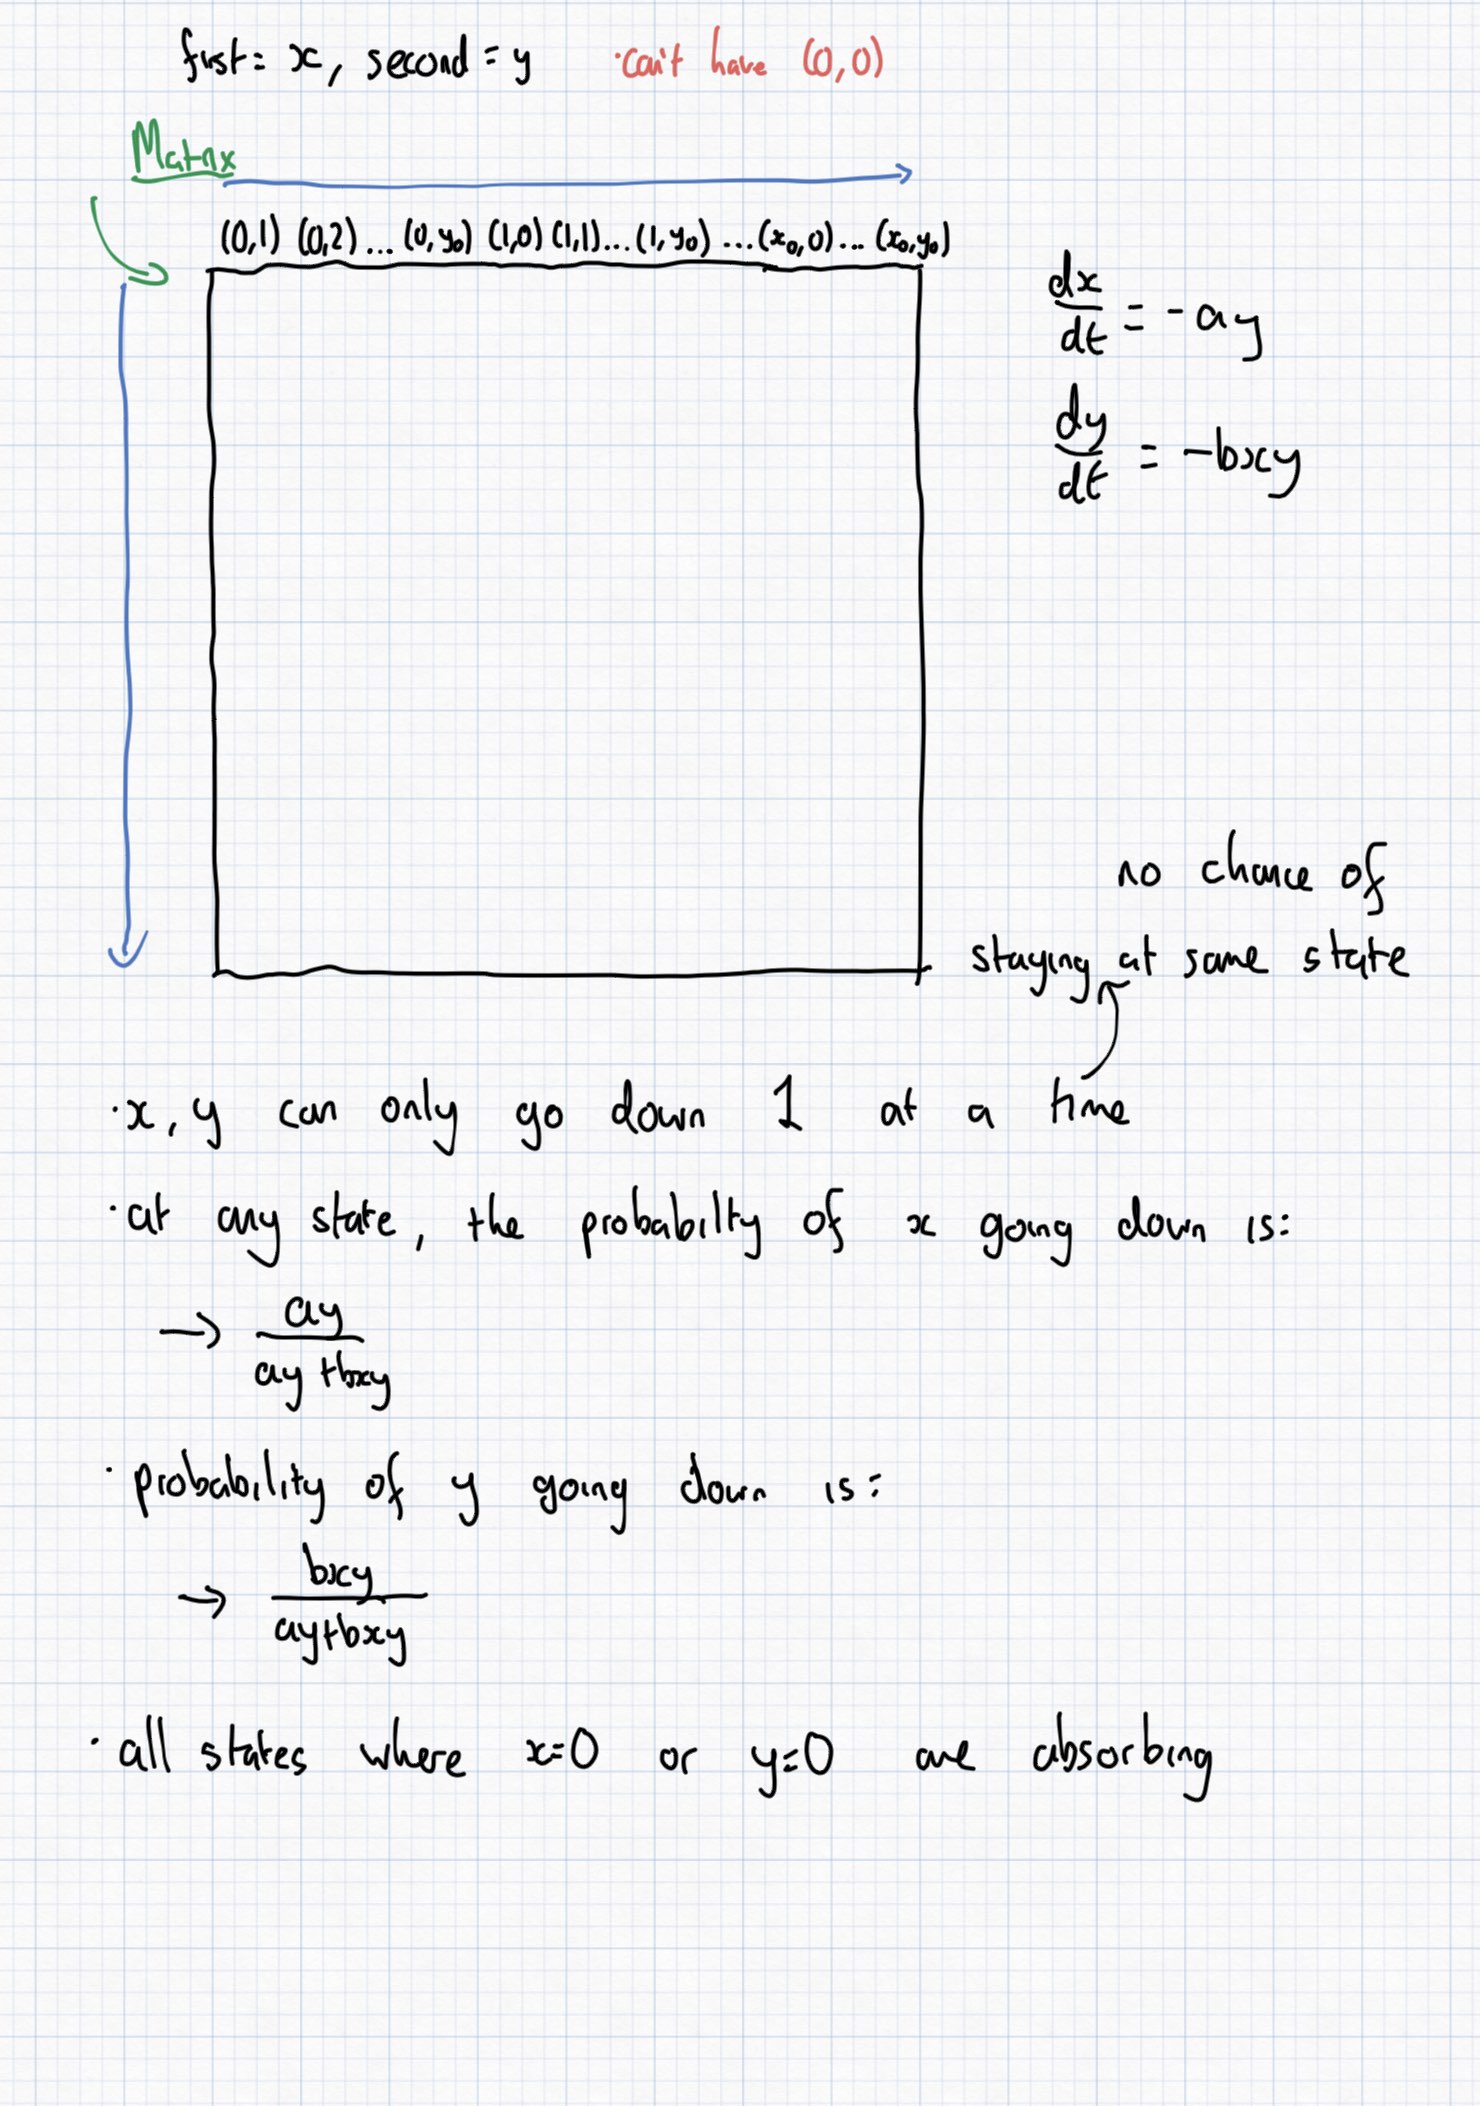 first = x, second = y ·can't have (0,0)
Matrix
(0,1) (0,2) ... (0,y₀) (1,0) (1,1)... (1,y₀) ...(x₀,0)... (x₀,y₀)
dx/dt = -ay
dy/dt = -bxy
no chance of
staying at same state
·x, y can only go down 1 at a time
·at any state, the probabilty of x going down is:
→ ay/ay+bxy
·probability of y going down is:
→ bxy/ay+bxy
·all states where x=0 or y=0 are absorbing